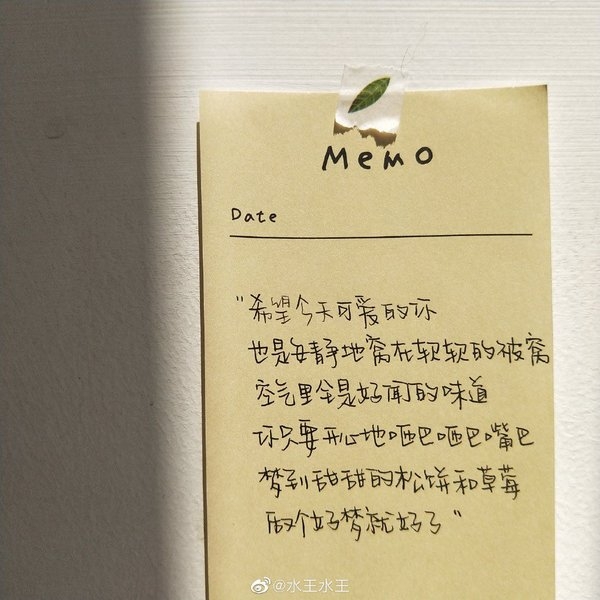 Memo
Date
"希望今天可爱的你
也是安静地窝在软软的被窝
空气里全是好闻的味道
你只要开心地咂巴咂巴嘴巴
梦到甜甜的松饼和草莓
做个好梦就好了"
@水王水王